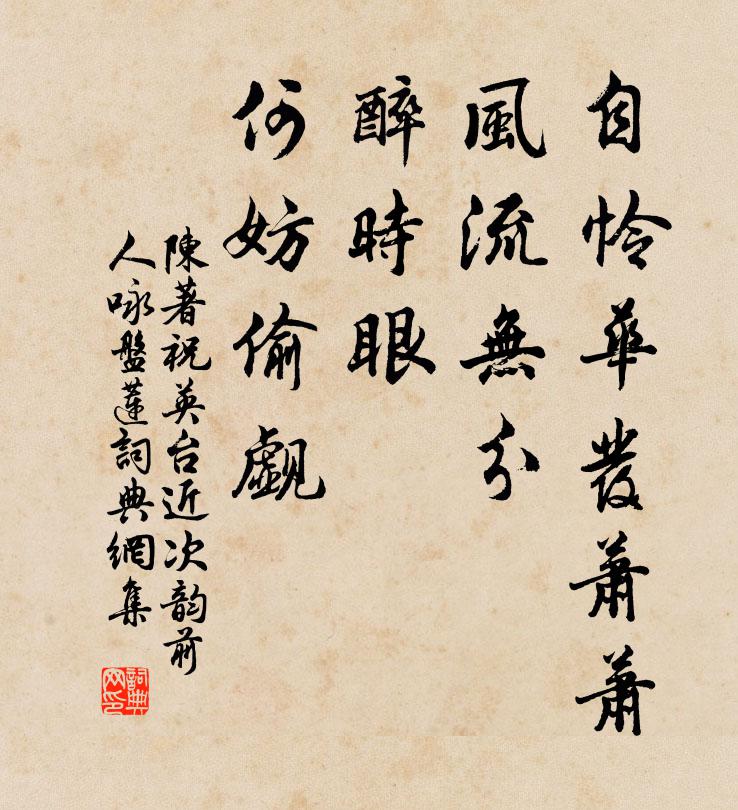 自怜華發蕭蕭
風流無分
醉時眼
何妨偷覷
陳著祝英台近次韵前
人咏盤蓮詞典網集
詞典
网印